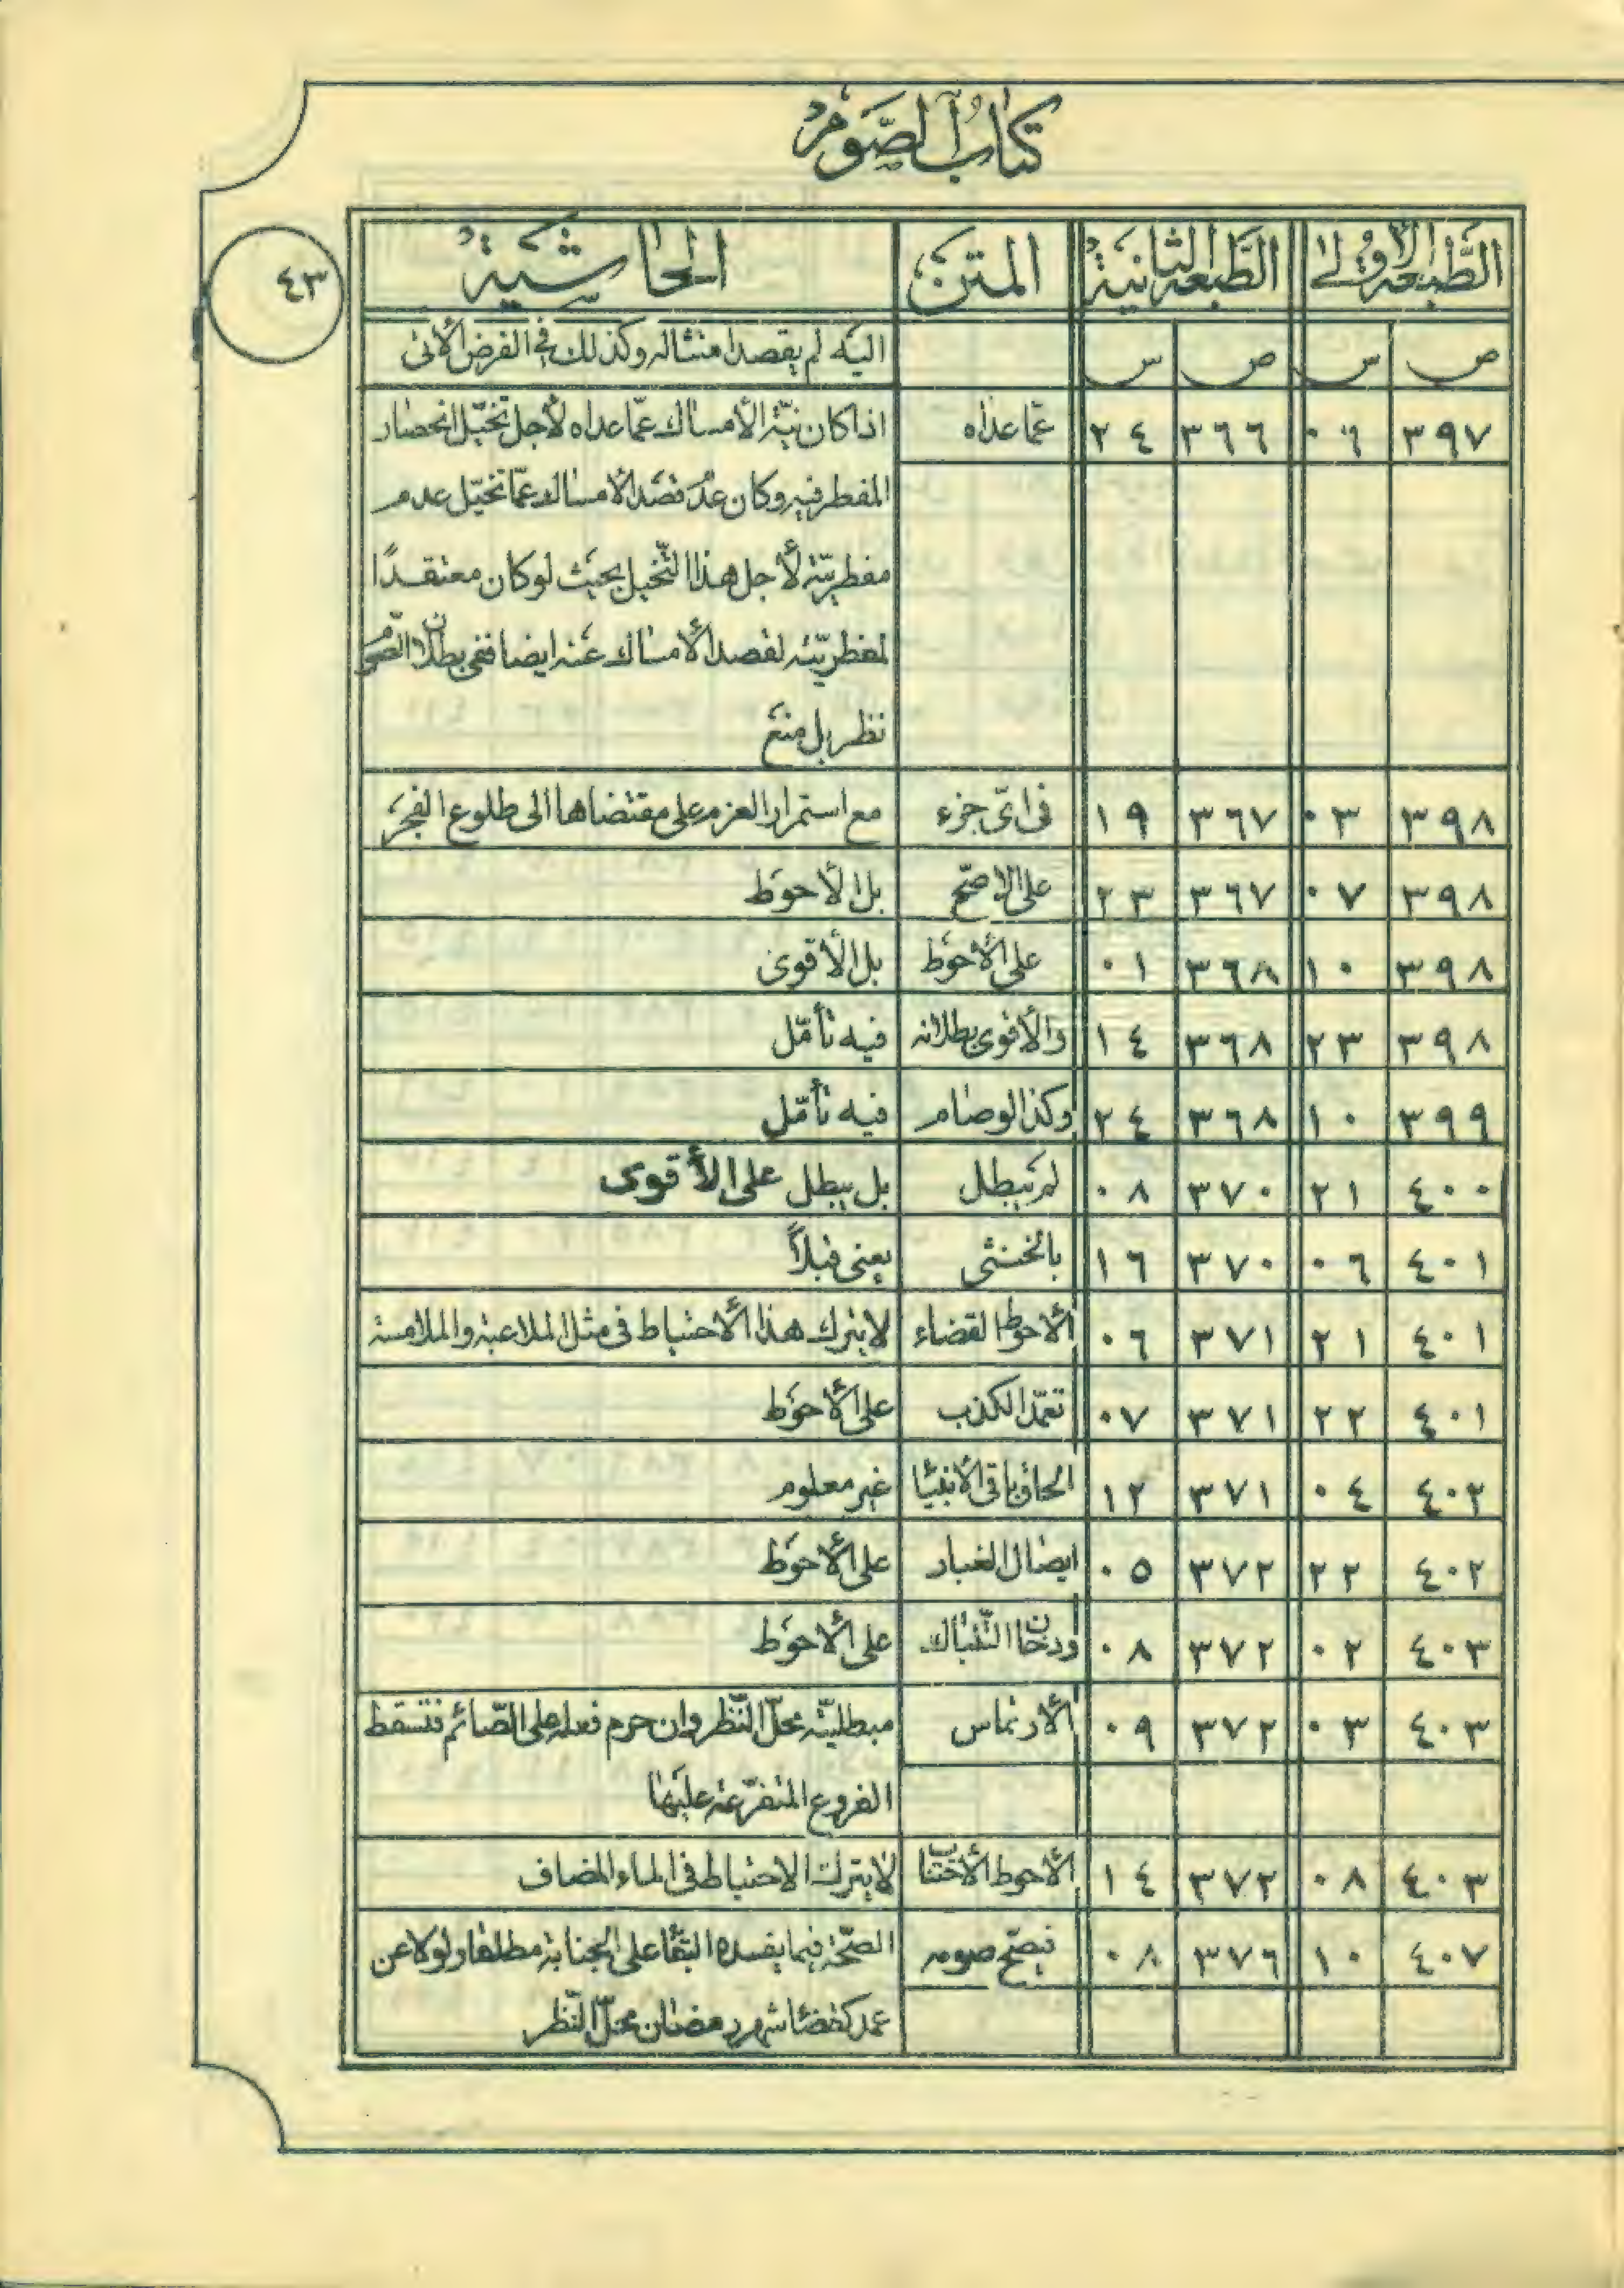 كتاب الصوم
٤٣
الطبعة الأولى الطبعة الثانية المتن الحاشية
ص س ص س اليه لم يقصد امتثاله وكذلك في الفرض الأتي
٣٩٧ ٠٦ ٣٦٦ ٢٤ عمّا عداه اذا كان نيّة الأمساك عمّا عداه لأجل تخيّل انحصار
المفطر فيه وكان عدم قصد الأمساك عمّا تخيّل عدم
مفطريّته لأجل هذا التّخيل بحيث لو كان معتقدًا
لمفطريّته لقصد الأمساك عنه ايضا ففي بطلان الصّوم
نظر بل منع
٣٩٨ ٠٣ ٣٦٧ ١٩ في اىّ جزء مع استمرار العزم على مقتضاها الى طلوع الفجر
٣٩٨ ٠٧ ٣٦٧ ٢٣ على الاصحّ بل الأحوط
٣٩٨ ١٠ ٣٦٨ ٠١ على الأحوط بل الأقوى
٣٩٨ ٢٣ ٣٦٨ ١٤ والأقوى بطلانه فيه تأمّل
٣٩٩ ١٠ ٣٦٨ ٢٤ وكذا لو صام فيه تأمّل
٤٠٠ ٢١ ٣٧٠ ٠٨ لم يبطل بل يبطل على الأقوى
٤٠١ ٠٦ ٣٧٠ ١٦ بالخنثى يعنى قبلاً
٤٠١ ٢١ ٣٧١ ٠٦ الأحوط القضاء لا يترك هذا الأحتياط في مثل الملاعبة والملامسة
٤٠١ ٢٢ ٣٧١ ٠٧ تعمّد الكذب على الأحوط
٤٠٢ ٠٤ ٣٧١ ١٢ الحاق باقى الأنبيا غير معلوم
٤٠٢ ٢٢ ٣٧٢ ٠٥ ايصال الغبار على الأحوط
٤٠٣ ٠٢ ٣٧٢ ٠٨ ودخان التّنباك على الأحوط
٤٠٣ ٠٣ ٣٧٢ ٠٩ الأرتماس مبطليّته محلّ النّظر وان حرم فعله على الصّائم فتسقط
الفروع المتفرّعة عليها
٤٠٣ ٠٨ ٣٧٢ ١٤ الأحوط الأجتناب لا يترك الاحتياط في الماء المضاف
٤٠٧ ١٠ ٣٧٦ ٠٨ فيصحّ صومه الصّحّة فيما يفسده البقا على الجنابة مطلقا ولو لا عن
عمد كقضا شهر رمضان محلّ النّظر